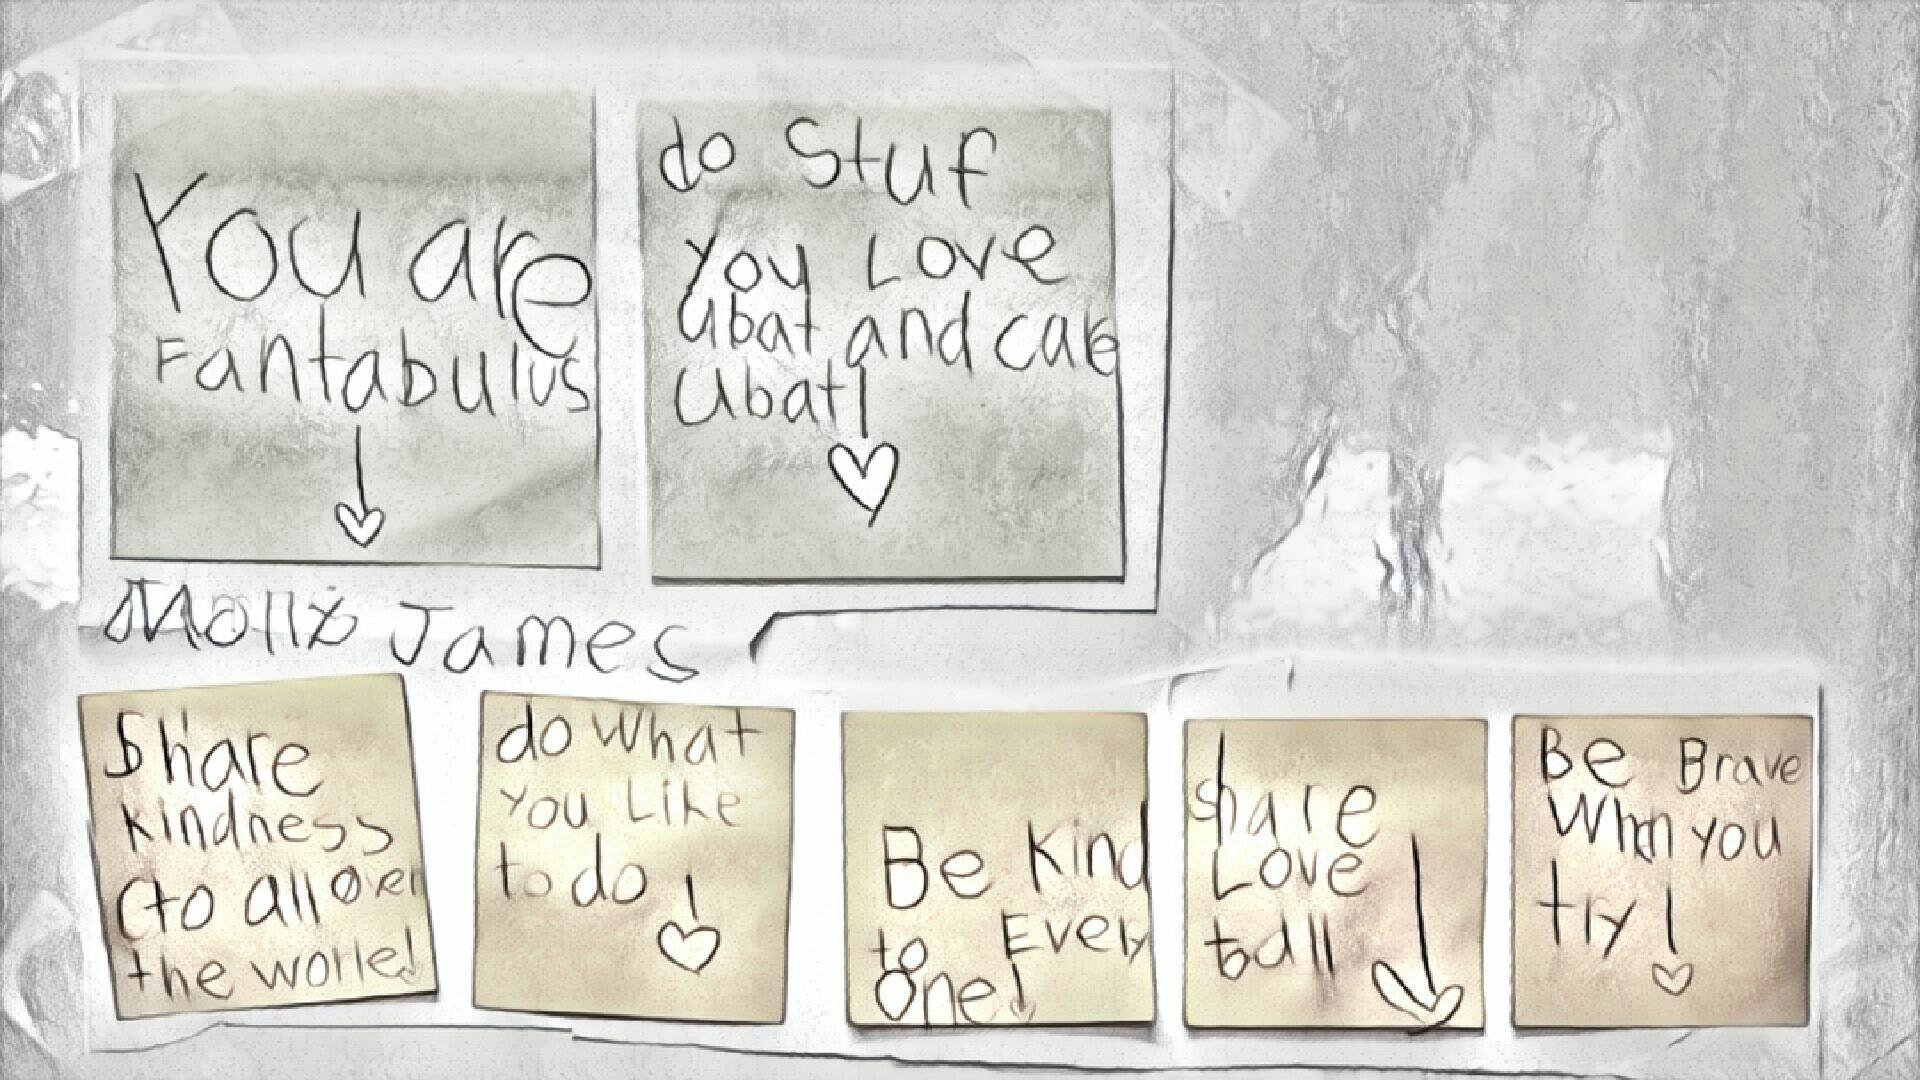 You are
Fantabulus
do Stuf
You Love
Ubat and care
Ubat!
Molly James
Share
kindness
to all over
the worle!
do What
you Like
to do !
Be Kind
to Every
One!
share
Love
to all !
Be Brave
When you
try!